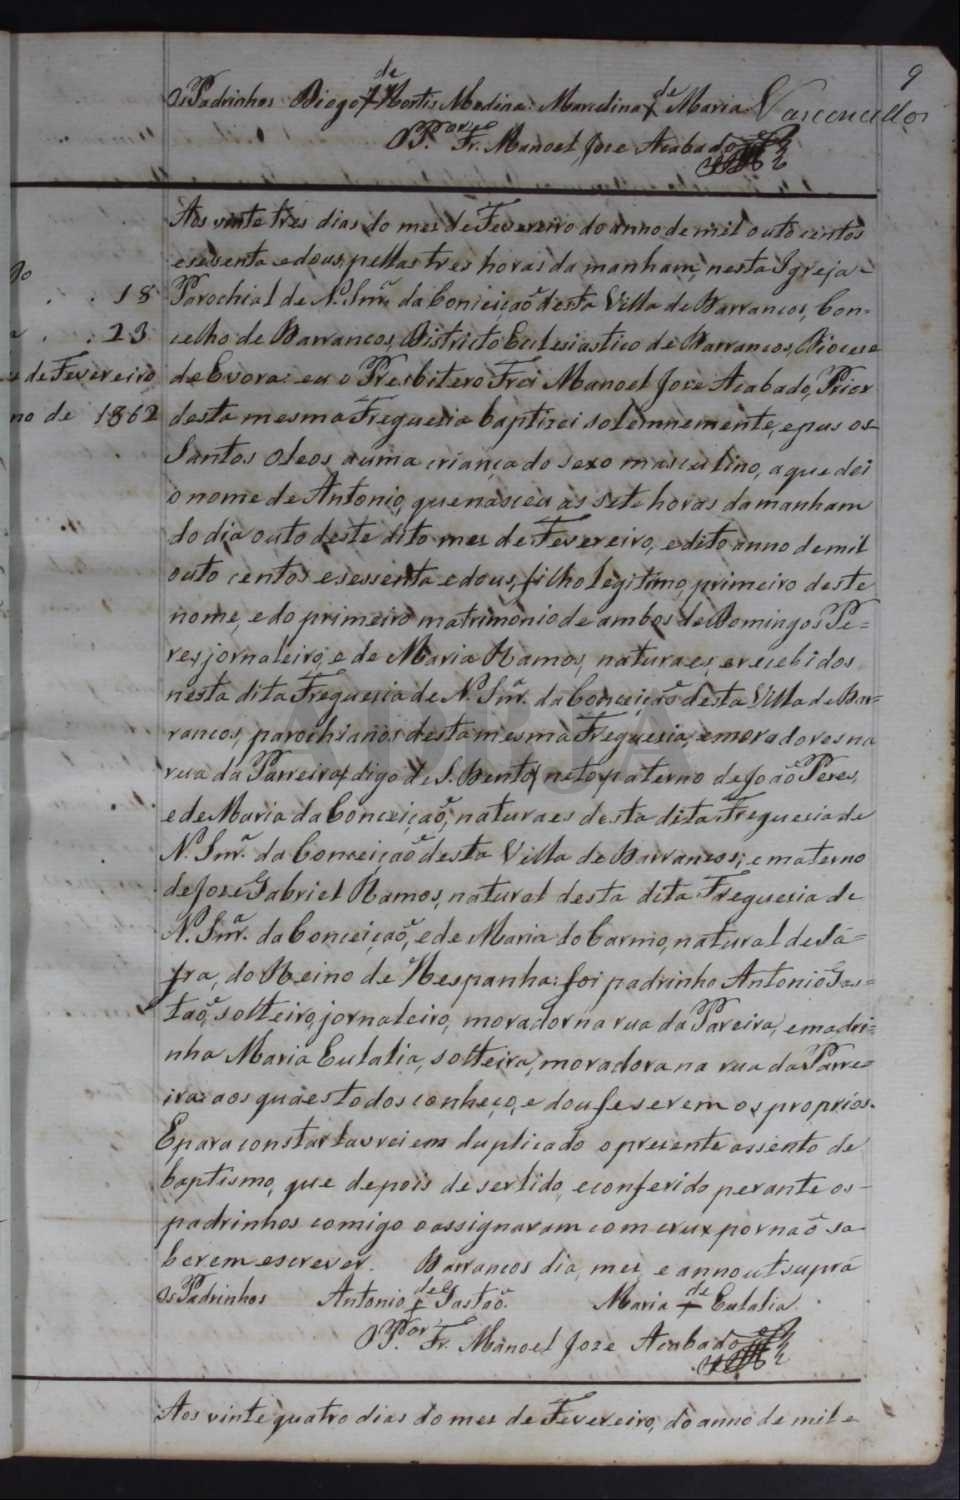 9
de de
Os Padrinhos Diogo + Mortis Medina. Marcelina + Maria Vasconcellos
O P.or Fr. Manoel Joze Acabado
Aos vinte tres dias do mes de Fevereiro do anno de mil outo centos
e sesenta e dous, pellas tres horas da manham, nesta Igreja
Parochial de N. Snrã. da Conceição desta Villa de Barrancos, Con-
celho de Barrancos, Districto Ecclesiastico de Barrancos, Diocese
de Evora: eu o Presbitero Frei Manoel Joze Acabado, Prior
desta mesma Freguesia baptizei solemnemente, e pus os
Santos Oleos a uma criança do sexo masculino, a que dei
o nome de Antonio, que nasceu ás sete horas da manham
do dia outo deste dito mes de Fevereiro, e dito anno de mil
outo centos e sessenta e dous, filho legitimo, primeiro deste
nome, e do primeiro matrimonio de ambos de Domingos Pe=
res, jornaleiro, e de Maria Ramos, naturaes, e recebidos
nesta dita Freguesia de N. Snrã. da Conceição desta Villa de Bar=
rancos, parochianos desta mesma Freguesia, e moradores na
rua da Parreira, digo de S. Bento, neto paterno de João Peres,
e de Maria da Conceição, naturaes desta dita Freguesia de
N. Snrã. da Conceição desta Villa de Barrancos; e materno
de Joze Gabriel Ramos, natural desta dita Freguesia de
N. Snrã. da Conceição, e de Maria do Carmo, natural de Sá=
fra, do Reino de Hespanha: foi padrinho Antonio Gas=
tão, solteiro, jornaleiro, morador na rua da Pareira, e madri=
nha Maria Eulalia, solteira, moradora na rua da Parre=
ira: aos quaes todos conheço, e dou fe serem os proprios.
E para constar lavrei em duplicado o presente assento de
baptismo, que depois de ser lido, e conferido perante os
padrinhos comigo o assignaram com crux por não sa
berem escrever. Barrancos dia, mes, e anno ut supra
de de
Os Padrinhos Antonio + Gastão. Maria + Eulalia.
O P.or Fr. Manoel Joze Acabado
Aos vinte quatro dias do mes de Fevereiro, do anno de mil e
18
23
de Fevereiro
no de 1862